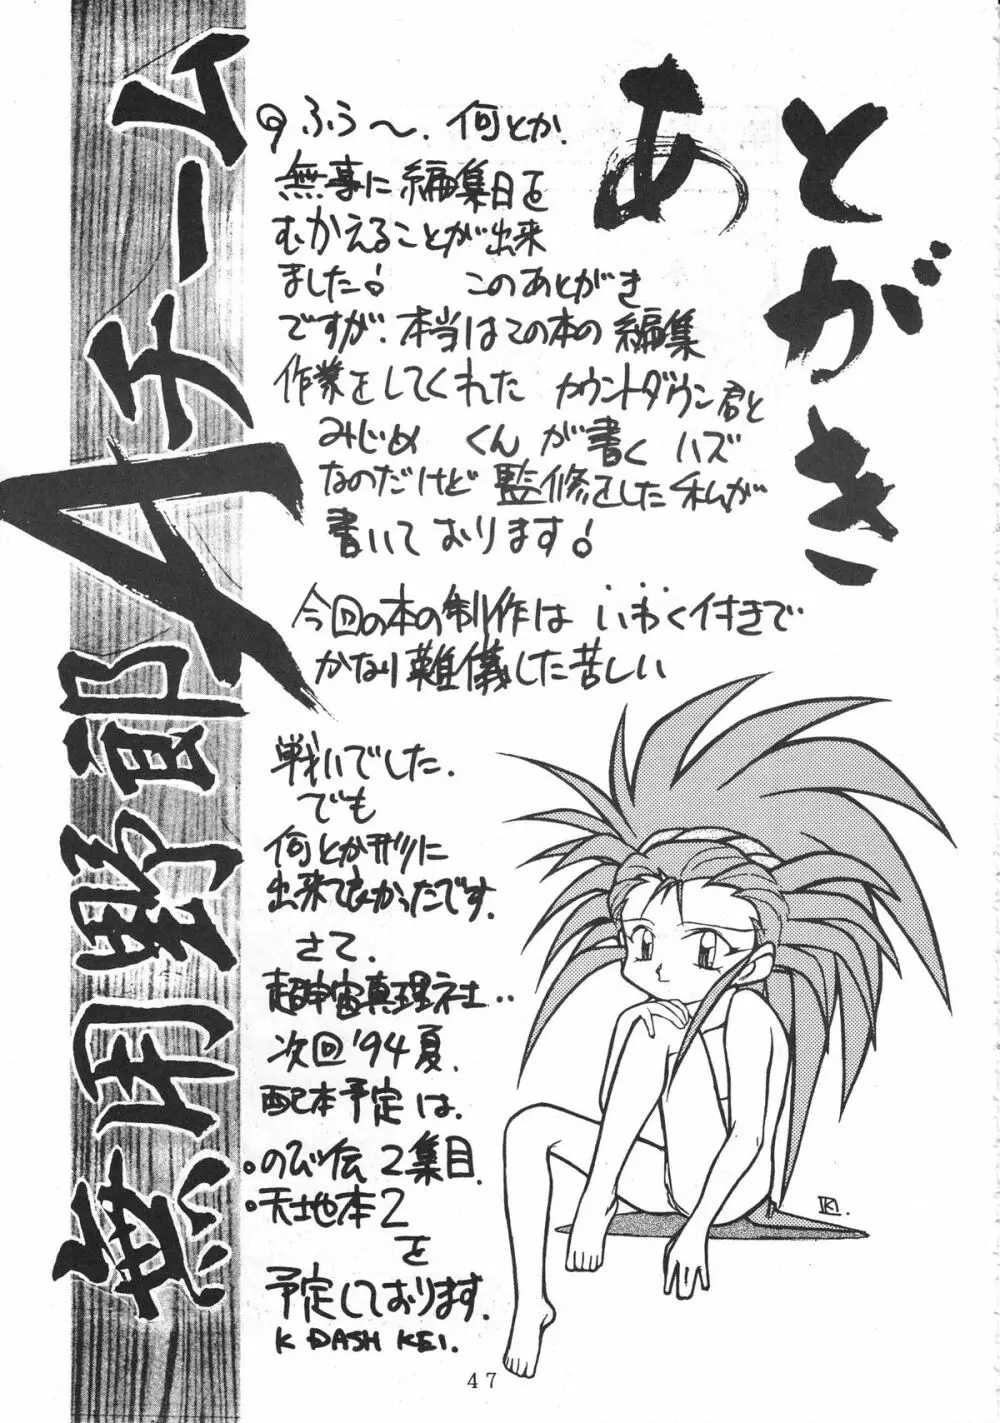 あとがき
ふぅ〜. 何とか.
無事に編集日を
むかえることが出来
ました! このあとがき
ですが. 本当はこの本の編集
作業をしてくれた カウントダウン君と
みじめ くんが書くハズ
なのだけど 監修をした私が
書いております!
今回の本の制作は いわく付きで
かなり難儀した苦しい
戦いでした.
でも
何とか形に
出来て良かったです.
さて.
超宇宙真理社..
次回'94夏.
配本予定は.
•のび伝2集目.
•天地本2
を
予定しております.
K DASH KEI.
熱用野郎Aチーム
47